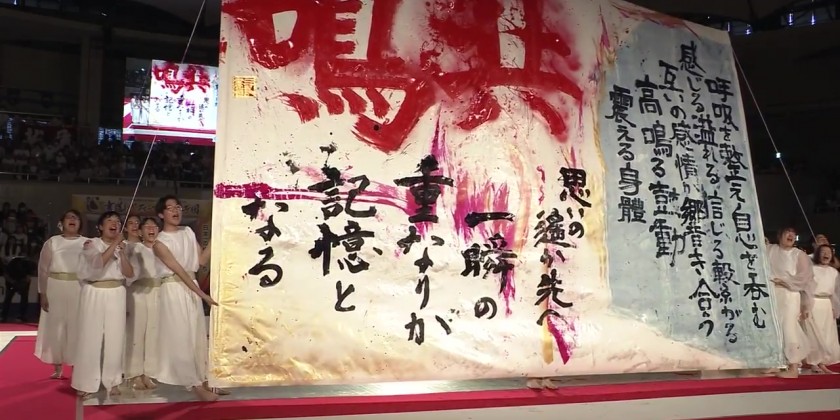 呼吸を整え息を呑む
感じる溢れる信じる繋がる
互いの感情が響き合う
高鳴る鼓動
震える身體
共鳴
思いの遙か先へ
一瞬の
重なりが
記憶と
なる